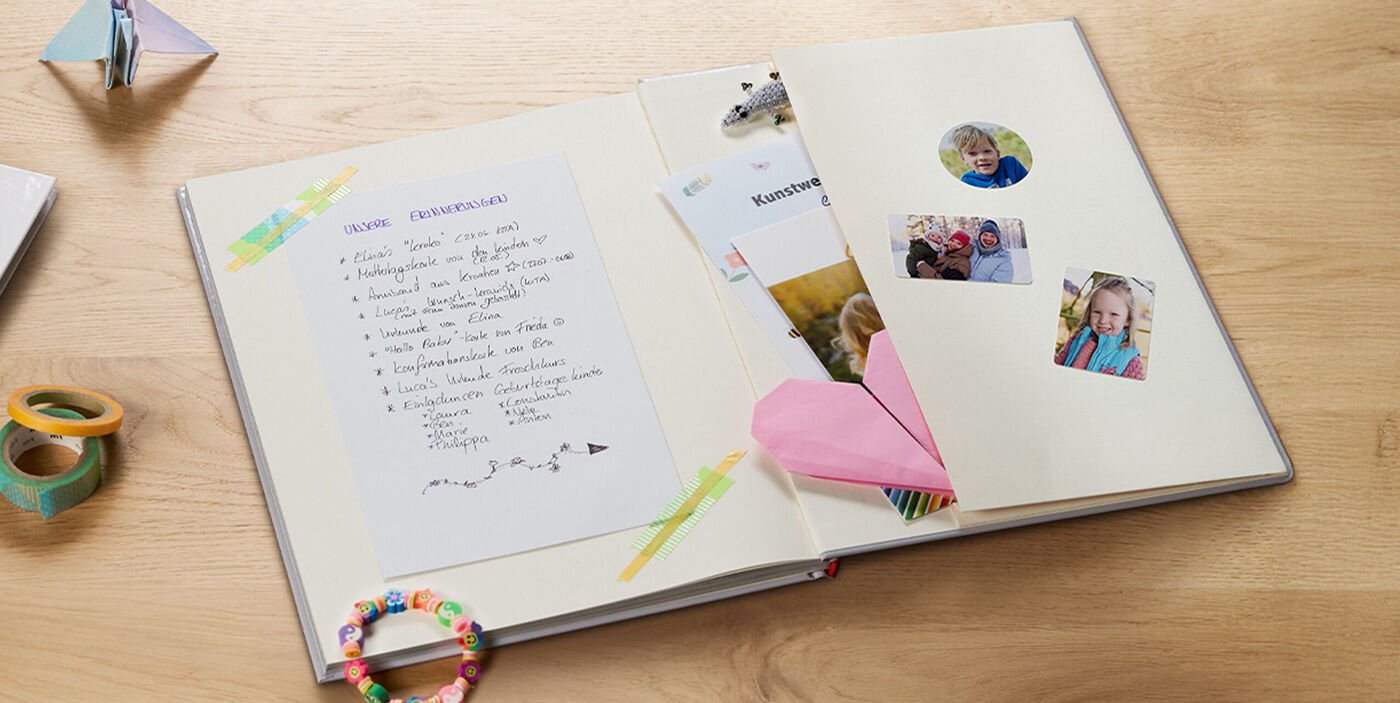 UNSERE ERINNERUNGEN
* Elina's "Kroko" (24.06 KITA)
* Muttertagskarte von den Kindern ♡
* Armband aus Kroatien ☆
* Luca's Wunsch-
* Urkunde von Elina
* "Hallo Baby"-Karte von Frieda ☺
* Konfirmationskarte von Ben
* Luca's Urkunde Froschkurs
* Einladungen Geburtstage Kinder
* Laura * Constantin
* Ben * Nele
* Marie * Anton
* Philippa
Kunstwe
mt